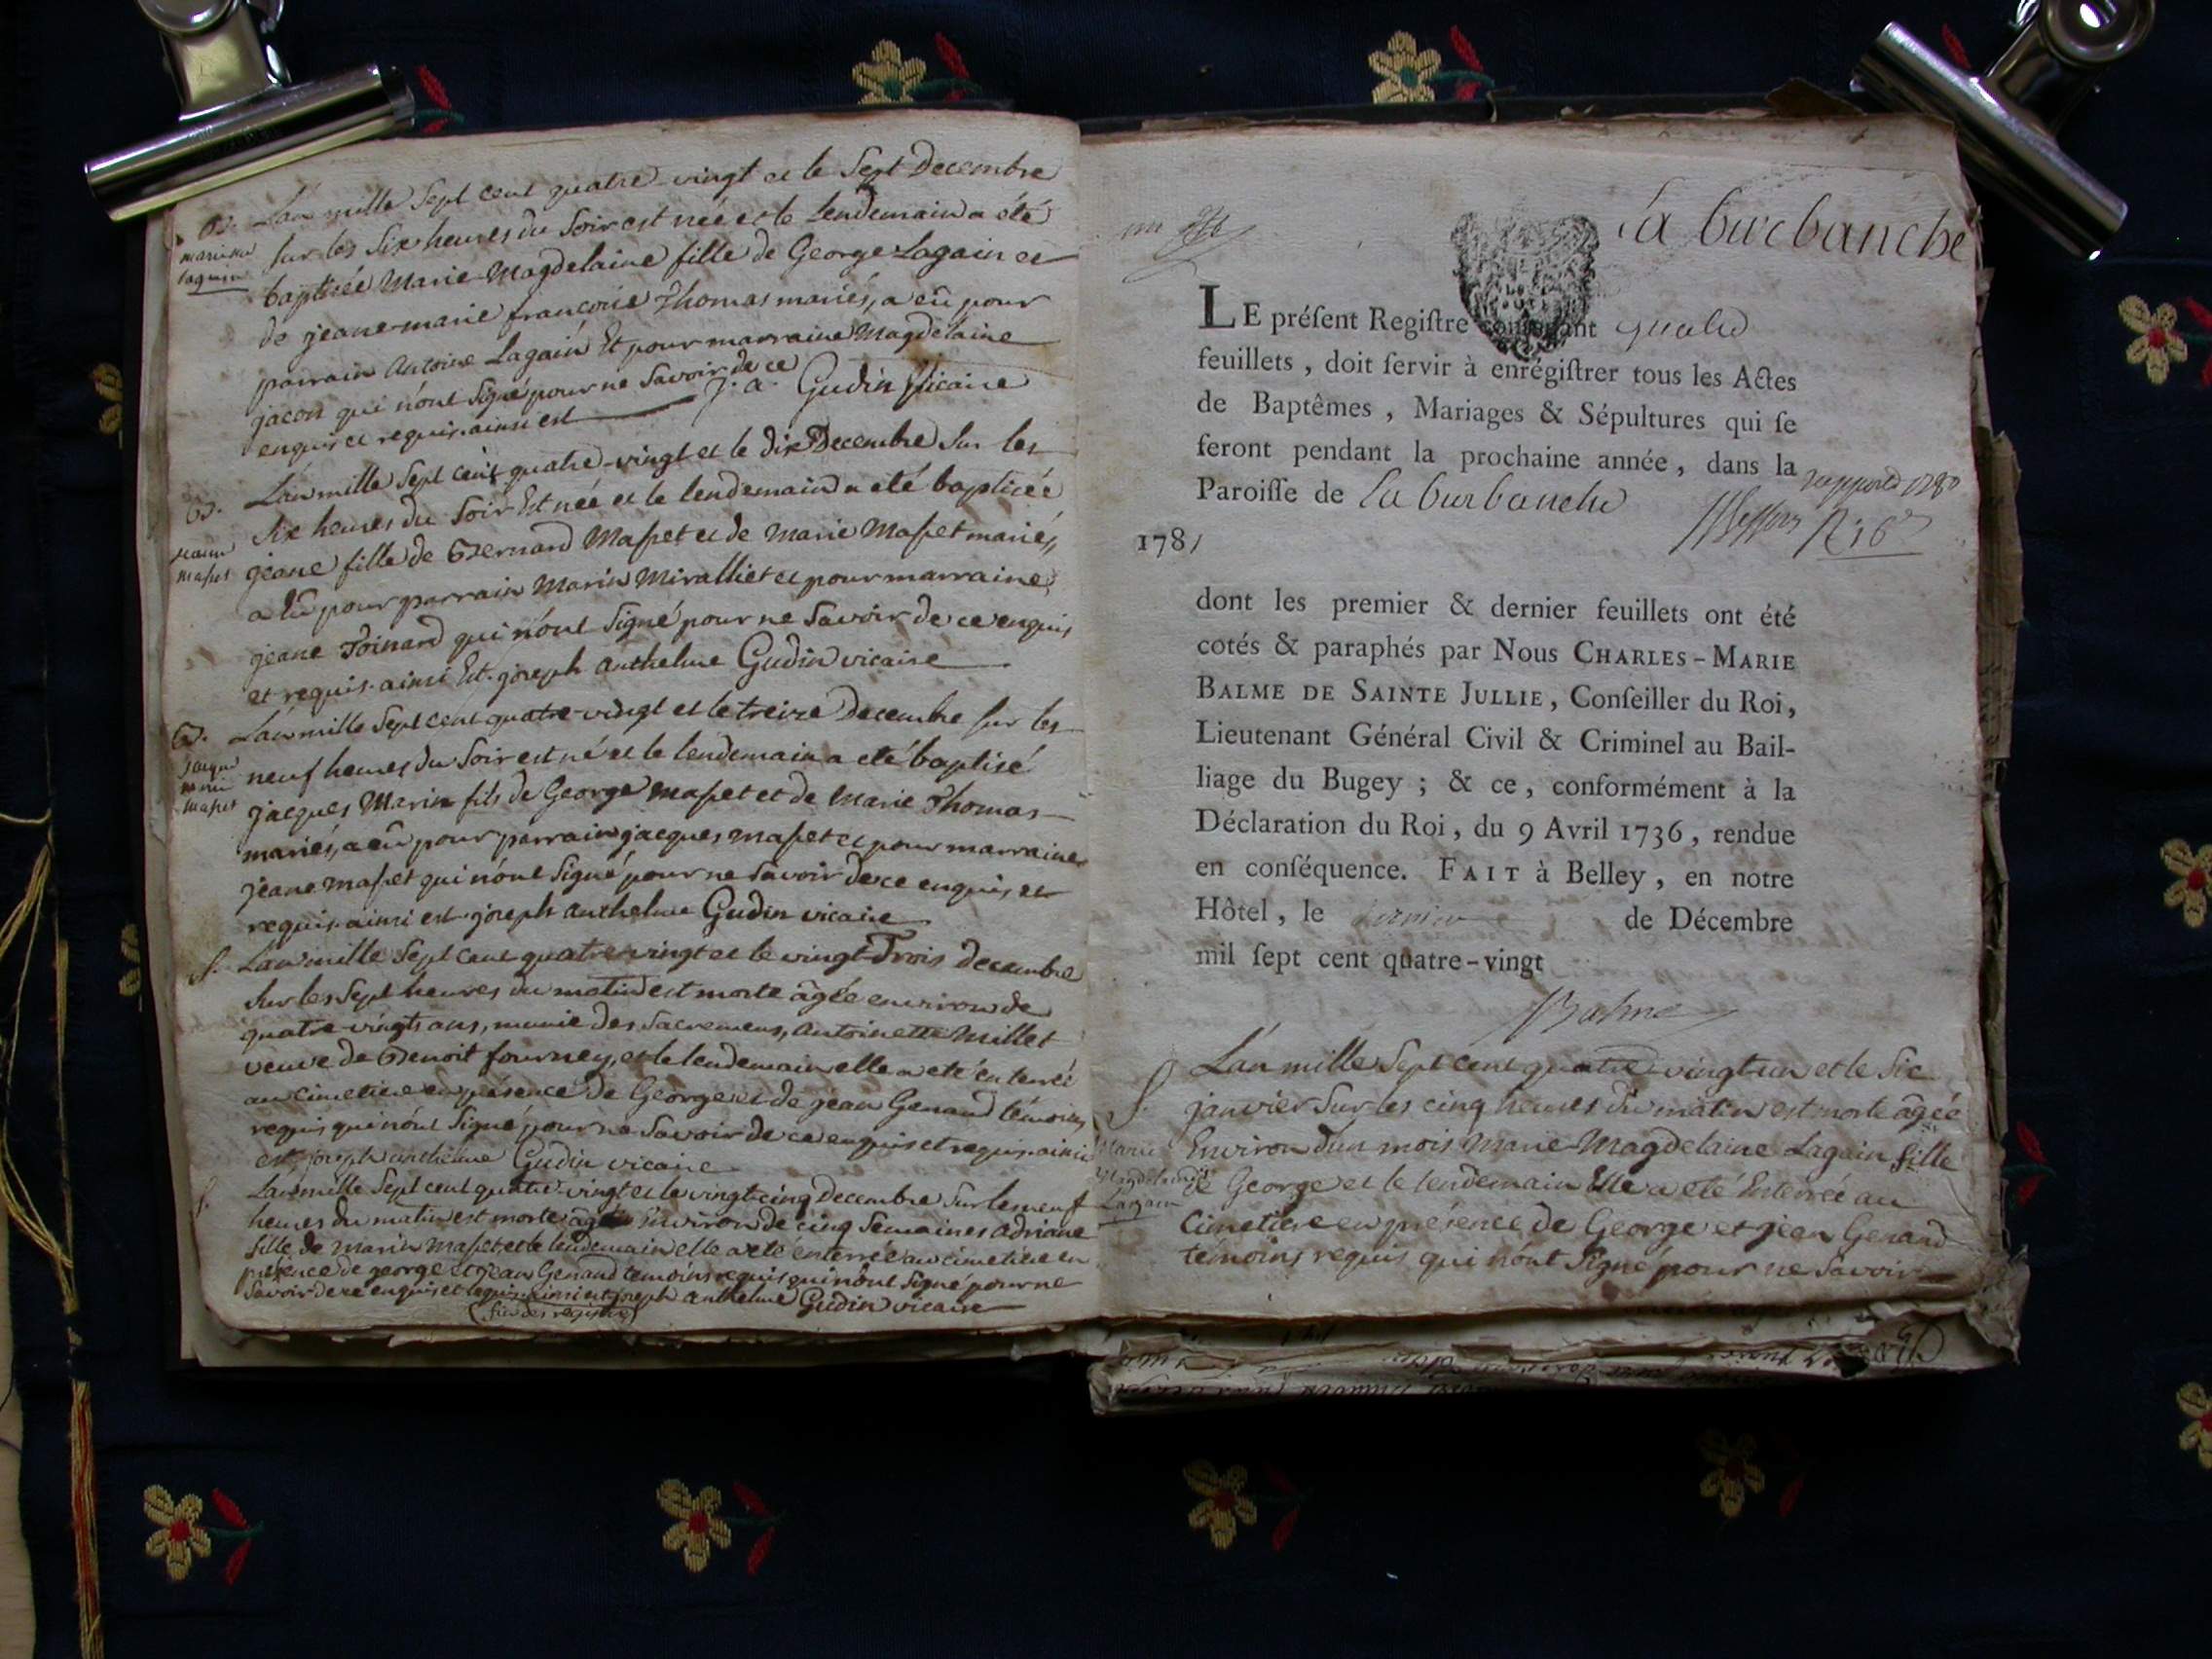 B. L'an mille Sept cent quatre-vingt et le Sept Decembre
Sur les Six heures du Soir est née et le Lendemain a été
baptisée Marie Magdelaine fille de George Lagain et
de jeane-marie françoise Thomas mariés, a eû pour
parrain Antoine Lagain Et pour marraine Magdelaine
jacon qui n'ont Signé pour ne Savoir de ce
enquis et requis. ainsi est J. a. Gudin vicaire
B. L'an mille Sept cent quatre-vingt et le dix Decembre Sur les
Six heures du Soir Est née et le lendemain a été baptisée
jeane masset
jeane fille de Bernard Masset et de Marie Masset mariés,
a eû pour parrain Marin Miralliet et pour marraine
jeane Toinard qui n'ont Signé pour ne Savoir de ce enquis
et requis. ainsi Est. joseph Anthelme Gudin vicaire
B. L'an mille Sept cent quatre-vingt et le treize Decembre sur les
neuf heures du Soir est né et le lendemain a eté baptisé
jacque marin masset
jacques Marin fils de George masset et de Marie Thomas
mariés, a eû pour parrain jacques masset et pour marraine
jeane masset qui n'ont Signé pour ne Savoir de ce enquis et
requis. ainsi est joseph anthelme Gudin vicaire
S. L'an mille Sept cent quatre-vingt et le vingt-Trois decembre
Sur les Sept heures du matin est morte âgée environ de
quatre-vingts ans, munie des Sacremens, Antoinette Millet
veuve de Benoit fourney, et le lendemain elle a eté enterrée
au cimetiere en présence de George et de jean Genand témoins
requis qui n'ont Signé pour ne Savoir de ce enquis et requis. ainsi
est joseph anthelme Gudin vicaire
S. L'an mille Sept cent quatre-vingt et le vingt-cinq decembre Sur les neuf
heures du matin est morte âgée Environ de cinq Semaines adriane
fille de Marin Masset et le lendemain elle a eté enterrée au cimetiere en
présence de george et jean Genand temoins requis qui n'ont Signé pour ne
Savoir de ce enquis et requis. ainsi est joseph anthelme Gudin vicaire
(fin des registre)
La burbanche
LE préſent Regiſtre contenant quatre
feuillets , doit ſervir à enrégiſtrer tous les Actes
de Baptêmes , Mariages & Sépultures qui ſe
feront pendant la prochaine année , dans la
Paroiſſe de La burbanche
rapporté 1780
1781
dont les premier & dernier feuillets ont été
cotés & paraphés par Nous CHARLES-MARIE
BALME DE SAINTE JULLIE, Conſeiller du Roi,
Lieutenant Général Civil & Criminel au Bail-
liage du Bugey ; & ce , conformément à la
Déclaration du Roi , du 9 Avril 1736 , rendue
en conſéquence. FAIT à Belley , en notre
Hôtel , le dernier de Décembre
mil ſept cent quatre-vingt
Balme
S. L'an mille Sept cent quatre vingt-un et le Six
janvier Sur les cinq heures du matin est morte âgée
Marie Magdelaine Lagain
Environ d'un mois Marie-Magdelaine Lagain fille
de George et le lendemain Elle a eté Enterrée au
Cimetiere en présence de George et jean Genand
témoins requis qui n'ont Signé pour ne Savoir